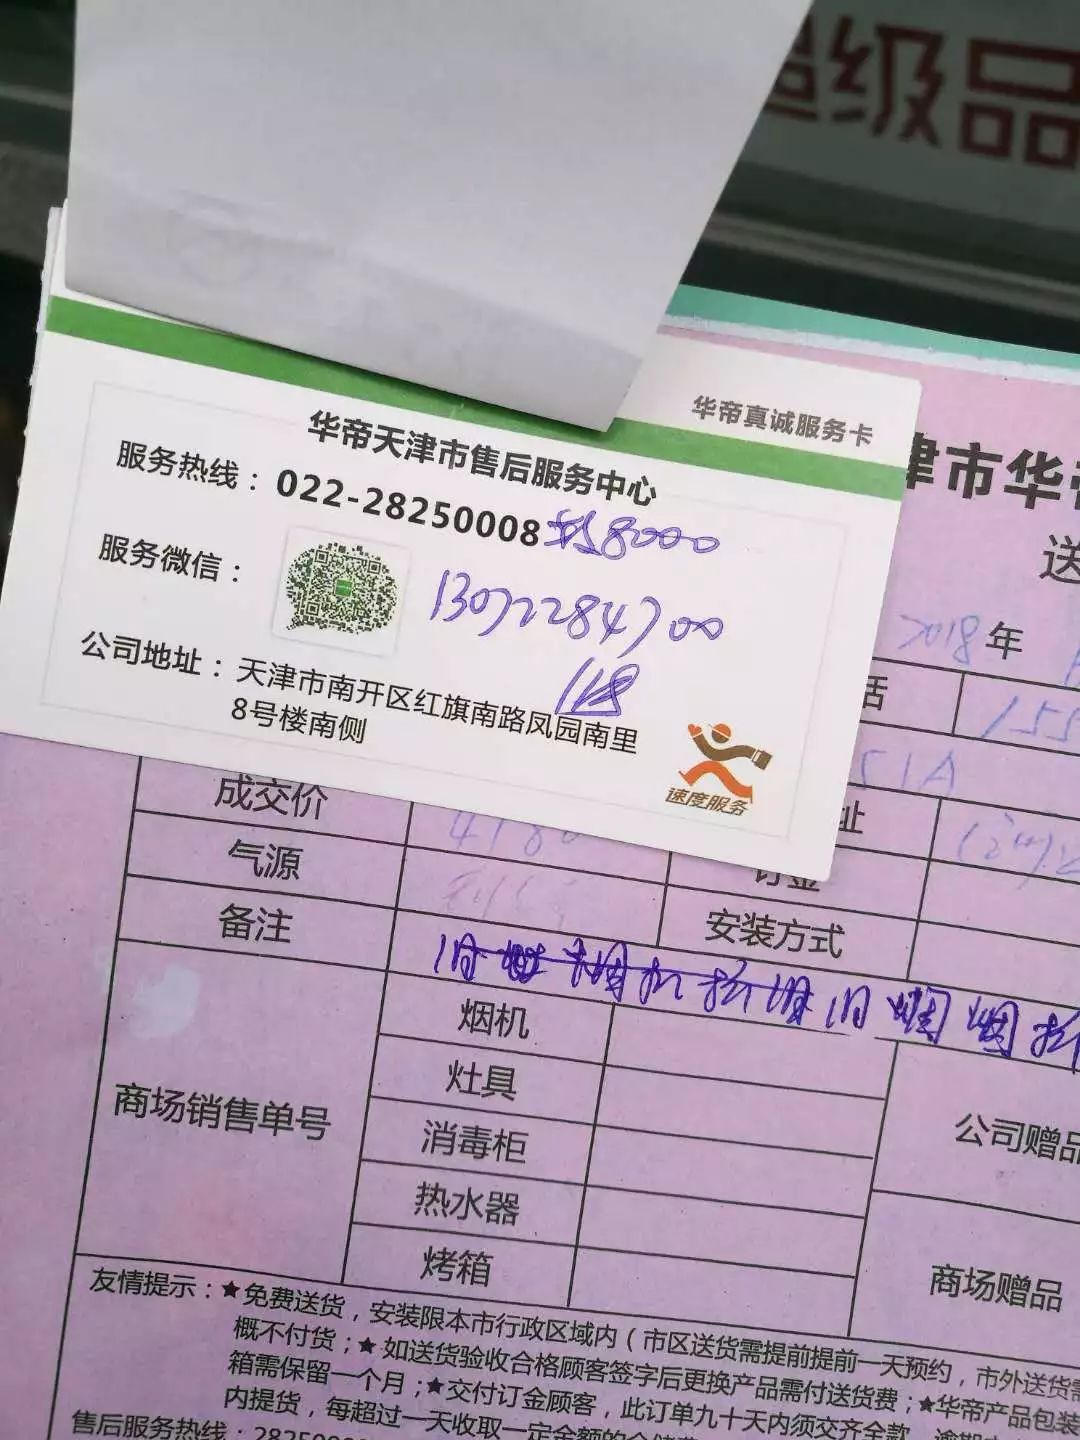 超级品
华帝真诚服务卡
华帝天津市售后服务中心
服务热线：022-28250008 转8000
服务微信：
13072284700
118
公司地址：天津市南开区红旗南路凤园南里
8号楼南侧
速度服务
津市华帝
送
2018年
话 155
51A
成交价 4180 址
气源 订金
备注 安装方式
商场销售单号
烟机
灶具
消毒柜
热水器
烤箱
公司赠品
商场赠品
友情提示：★免费送货，安装限本市行政区域内（市区送货需提前提前一天预约，市外送货需
概不付货；★如送货验收合格顾客签字后更换产品需付送货费；★华帝产品包装
箱需保留一个月；★交付订金顾客，此订单九十天内须交齐全款，逾期
内提货，每超过一天收取一定金额的仓储费
售后服务热线：28250008